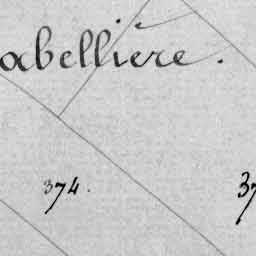 abellière.
374.
37